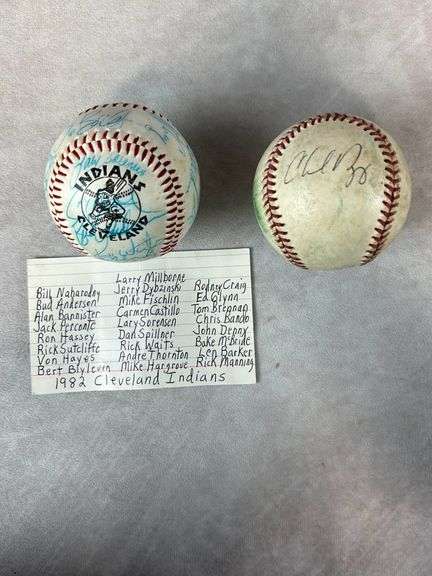 INDIANS
CLEVELAND
Bill Naharodny
Bad Andersen
Alan Bannister
Jack Perconte
Ron Hassey
Rick Sutcliffe
Von Hayes
Bert Blylevin
Larry Millborne
Jerry Dybzinski
Mike Fischlin
Carmen Castillo
Lary Sorensen
Dan Spillner
Rick Waits
Andre Thornton
Mike Hargrove
Rodney Craig
Ed Glynn
Tom Brennan
Chris Bando
John Denny
Bake McBride
Len Barker
Rick Manning
1982 Cleveland Indians